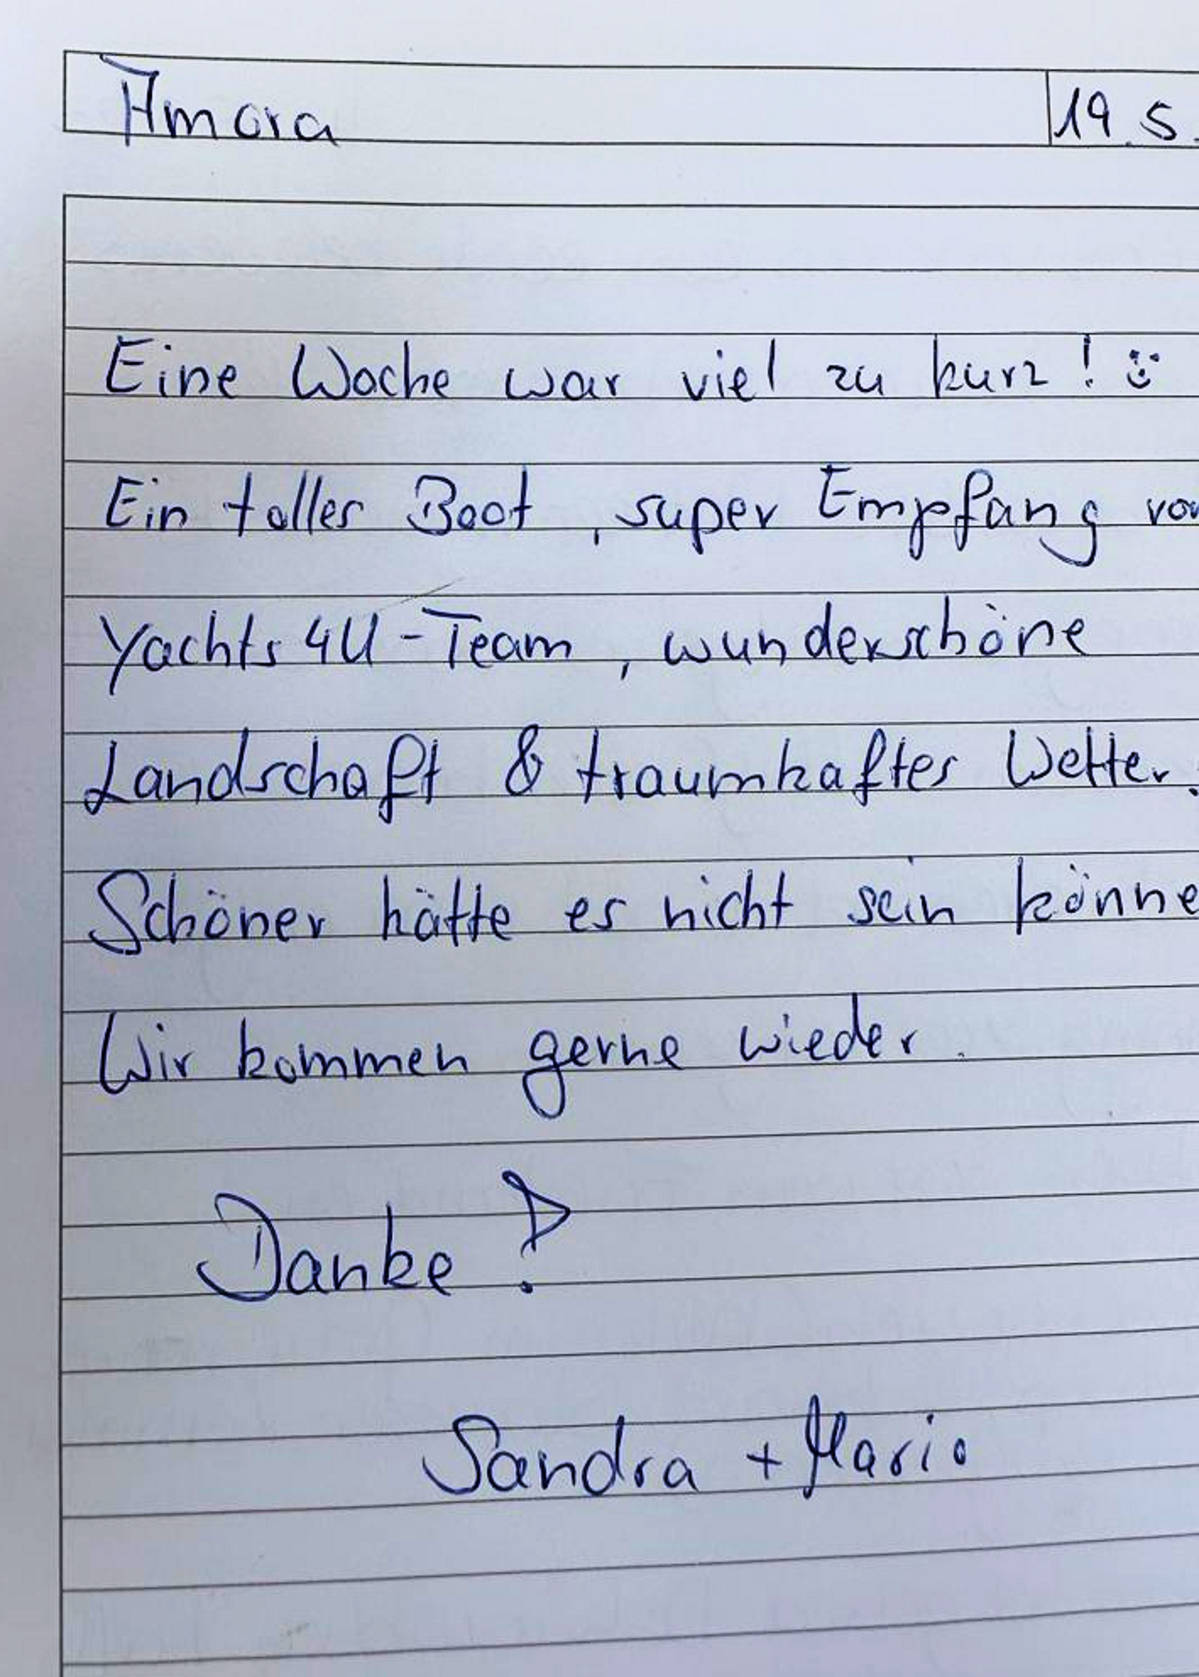 Amora 19.5.
Eine Woche war viel zu kurz! ☺
Ein tolles Boot, super Empfang vo
Yachts4U-Team, wunderschöne
Landschaft & traumhaftes Wetter.
Schöner hätte es nicht sein könne
Wir kommen gerne wieder.
Danke!
Sandra + Mario